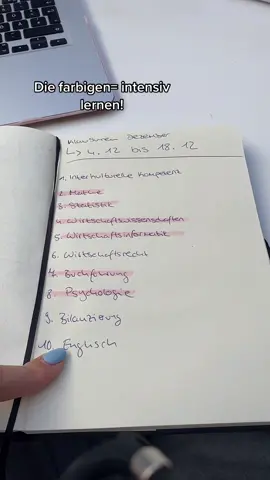 Die farbigen= intensiv
lernen!
Klausuren Dezember
↳ 4.12 bis 18.12
1. Interkulturelle Kompetenz
2. Mathe
3. Statistik
4. Wirtschaftswissenschaften
5. Wirtschaftsinformatik
6. Wirtschaftsrecht
7. Buchführung
8. Psychologie
9. Bilanzierung
10. Englisch